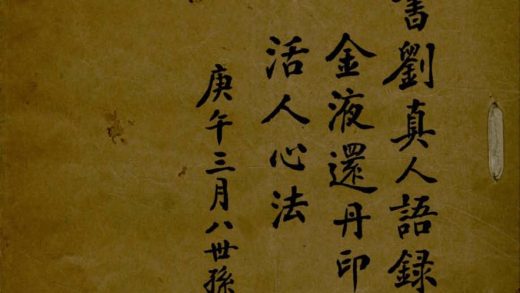 書劉真人語録
金液還丹印
活人心法
庚午三月八世孫